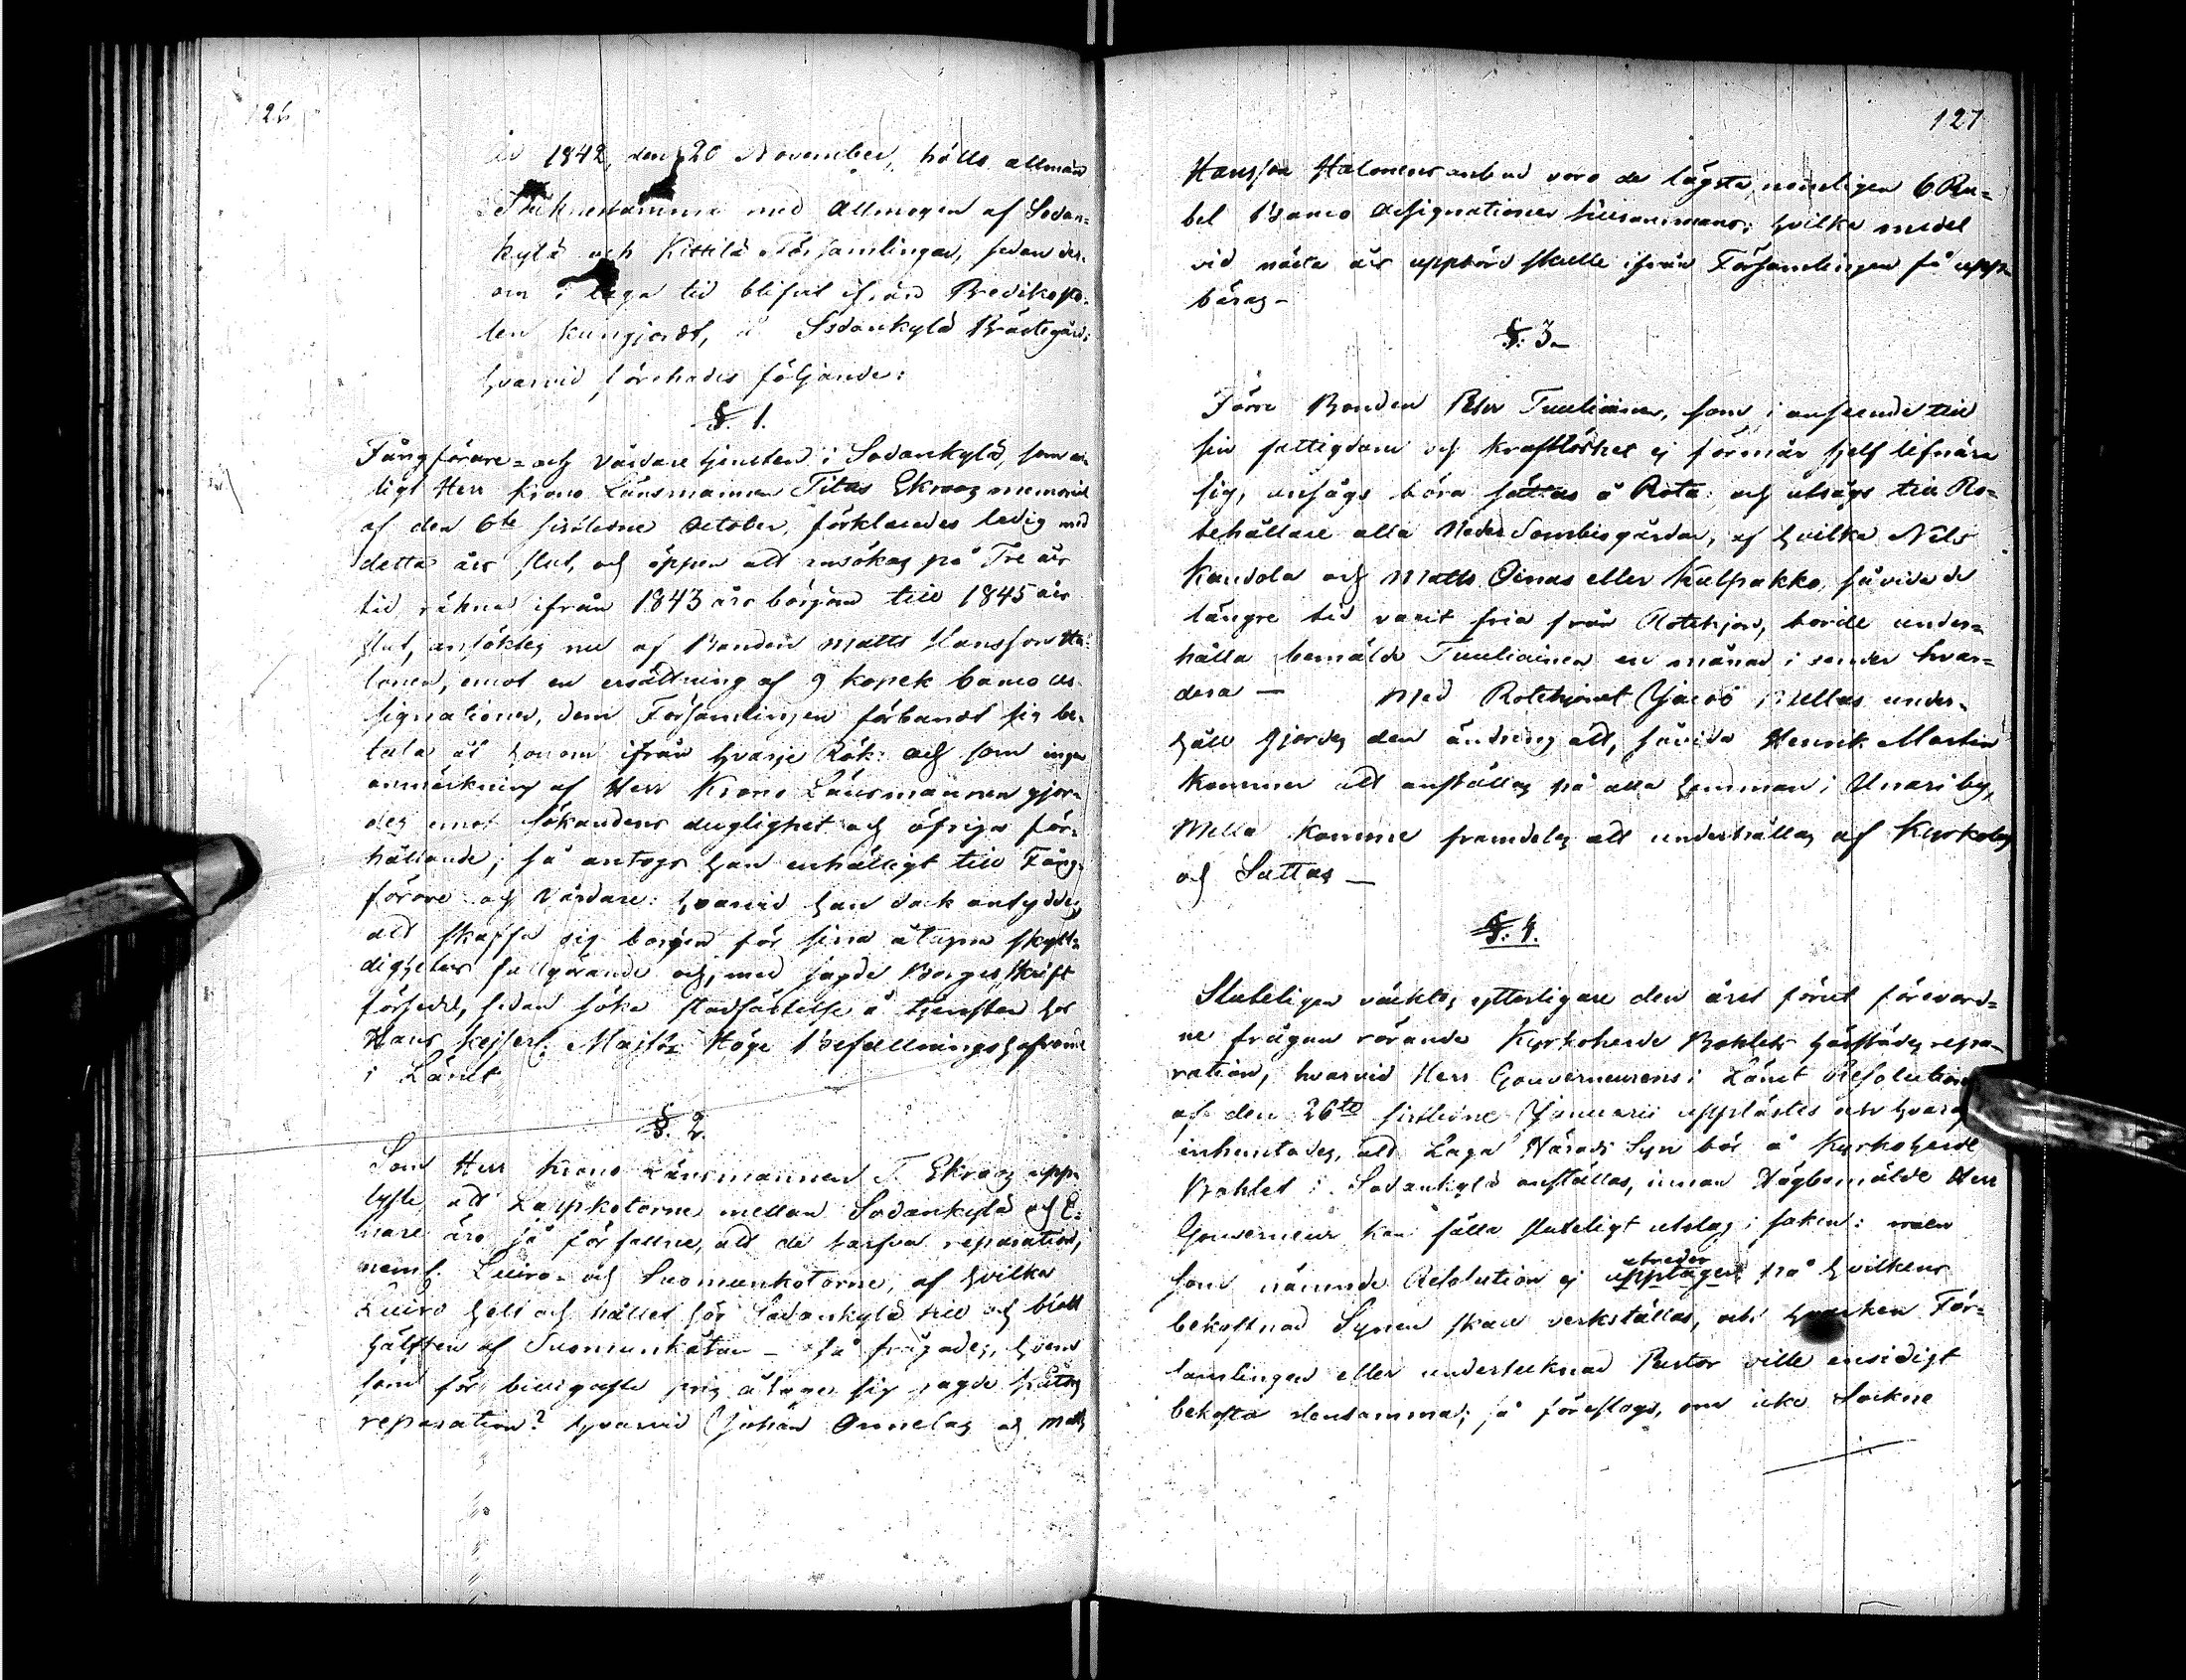 126
År 1842, den 20 November, hölls allmän
Socknestämma med Allmogen af Sodan=
kylä och Kittilä Församlingar, sedan der=
om i laga tid blifvit ifrån Predikosto=
len kungjordt, å Sodankylä Prästegård;
hvarvid förehades följande:
§. 1.
Fångförare= och Vårdare tjensten i Sodankylä, som en=
ligt Herr Krono Länsmannen Titus Ekroos memorial
af den 6te sistledne October, förklarades ledig med
detta års slut, och öppen att ansökas på Tre års
tid, räknad ifrån 1843 års början till 1845 års
slut, ansöktes nu af Bonden Matts Hansson Ha=
lonen, emot en ersättning af 9 kopek banco as=
signationer, dem Församlingen förbandt sig be=
tala åt honom ifrån hvarje Rök: och som ingen
anmärkning af Herr Krono Länsmannen gjor=
des emot sökandens duglighet och öfriga för=
hållande; så antogs han enhälligt till Fång=
förare och Vårdare: hvarvid han dock antyddes,
att skaffa sig borgen för sina åtagna skyl=
digheters fullgörande och, med sagde Borgesskrift
försedd, sedan söka stadfästelse å tjensten hos
Hans Kejserl. Majts Höge Befallningshafvande
i Länet
§. 2.
Som Herr Krono Länsmannen T. Ekroos upp=
lyste, att Lappkotorne mellan Sodankylä och E=
nare äro så förfallne, att de tarfva reparation,
neml. Luiro= och Suomunkotorne, af hvilka
Luiro helt och hållet hör Sodankylä till och blott
hälften af Suomunkåtan – så frågades, hvem
som för billigaste pris åtager sig sagde kåtors
reparation? hvarvid Johan Onnelas och Matts
127
Hansson Halonens anbud voro de lägsta, nemligen 6 Ru=
bel Banco Assignationer tillsammans; hvilka medel
vid nästa års uppbörd skulle ifrån Församlingen få upp=
bäras –
§. 3.
Förre Bonden Petter Tuuliainen, som i anseende till
sin fattigdom och kraftlöshet ej förmår sjelf lifnära
sig, ansågs böra sättas å Rota: och utsågs till Ro=
tehållare alla Neder Sombiogårdar, af hvilka Nils
Kaudola och Matts Oinas eller Kulpakko, såvida de
längre tid varit fria från Rotehjon, borde under=
hålla bemälde Tuuliainen en månad i sender hvar=
dera – Med Rotehjonet Jacob Mellas under=
håll gjordes den ändring att, såvida Henrik Martin
kommer att anställas på alla hemman i Unari by,
Mella komme framdeles att underhållas af Kyrkoby
och Sattas –
§. 4.
Sluteligen väcktes ytterligare den året förut förevard=
ne frågan rörande Kyrkoherde Bohlets härstädes repa=
ration, hvarvid Herr Gouverneurens i Länet Resolution
af den 26te sistledne Januari upplästes och hvaraf
inhemtades, att Laga Härads Syn bör å Kyrkoherde
Bohlet i Sodankylä anställas, innan Högbemälde Herr
Gouverneur kan fälla sluteligt utslag i saken: men
som nämnde Resolution ej upptager utreder på hvilkens
bekostnad Synen skall verkställas, och hvarken För=
samlingen eller undertecknad Pastor ville ensidigt
bekosta densamma; så föreslogs, om icke Sockne